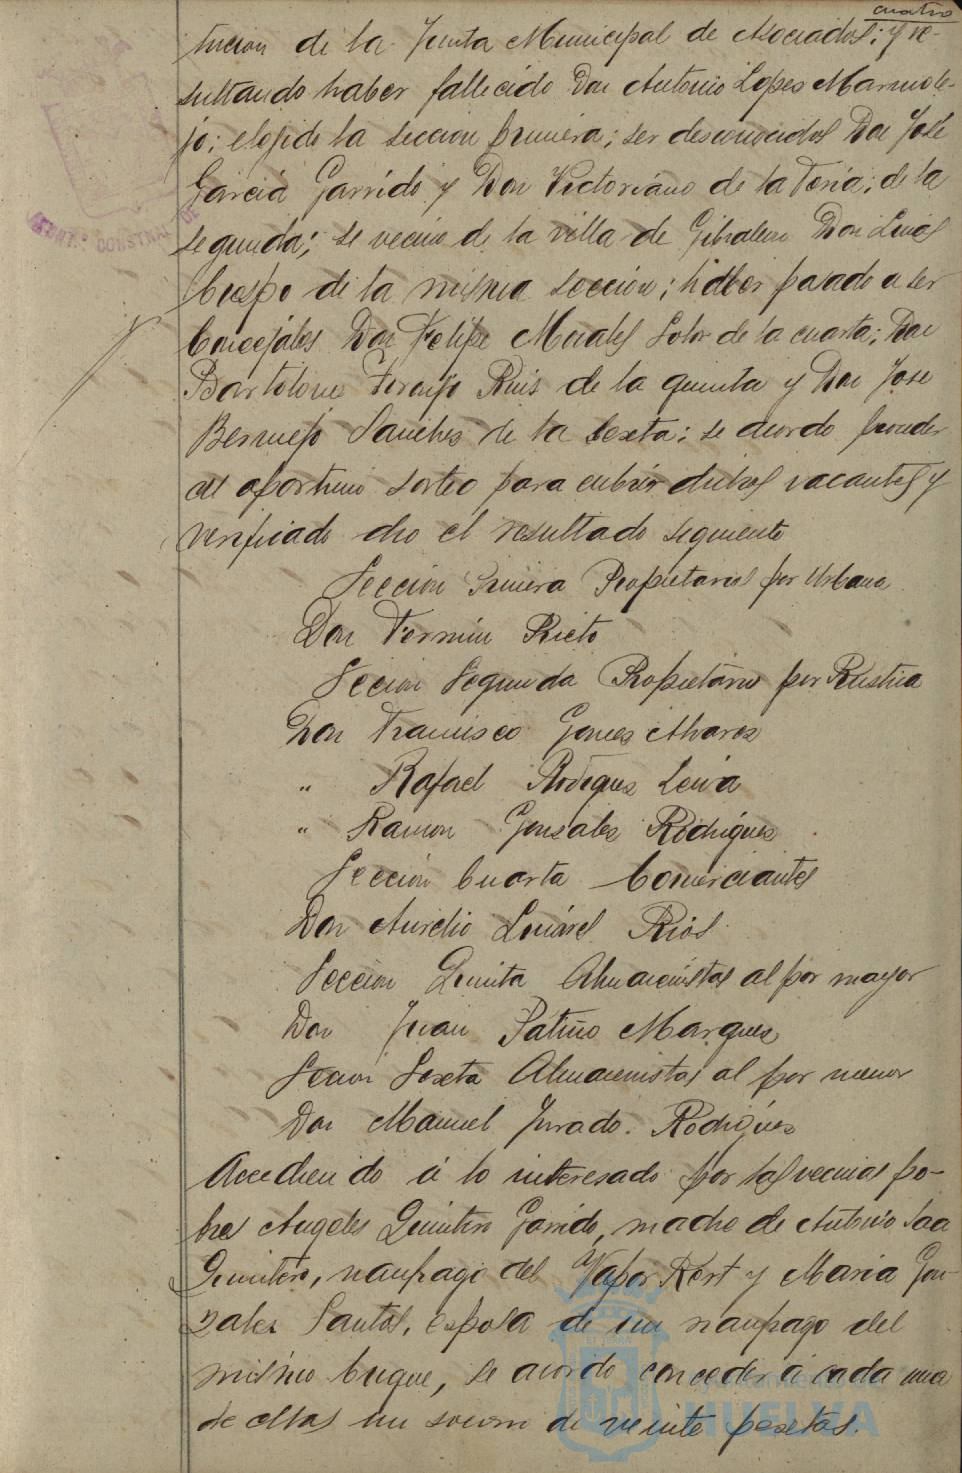 cuatro
tucion de la Junta Municipal de Asociados; y re-
sultando haber fallecido Don Antonio Lopes Marmole-
jo; elejido la seccion primera; ser desconocidos Don José
Garcia Garrido y Don Victoriano de la Feria; de la
segunda; se vecino de la villa de Gibraleon Don Luis
Crespo de la misma seccion; haber pasado a ser
Concejales Don Felipe Morales Soler de la cuarta; Don
Bartolome Ruis de la quinta y Don Jose
Bermejo Sanches de la Sexta; se acordo proceder
al oportuno sorteo para cubrir dichas vacantes y
verificado dio el resultado siguiente
Seccion Primera Propietarios por Urbana
Don Fermin Prieto
Seccion Segunda Propietarios por Rustica
Don Francisco Gomes Alvares
" Rafael Rodrigues Leiva
" Ramon Gonsales Rodrigues
Seccion Cuarta Comerciantes
Don Aurelio Linares Rios
Seccion Quinta Almacenistas al por mayor
Don Juan Patiño Marques
Seccion Sexta Almacenistas al por menor
Don Manuel Jurado Rodrigues
Accediendo á lo interesado por las vecinas po-
bres Angeles Quintero Garrido, madre de Antonio Saa
Quintero, naufrago del Vapor Kert y Maria Gon-
zales Santos, esposa de un naufrago del
mismo buque, se acordo conceder á cada una
de ellas un socorro de veinte pesetas.
Ayuntamiento de
HUELVA